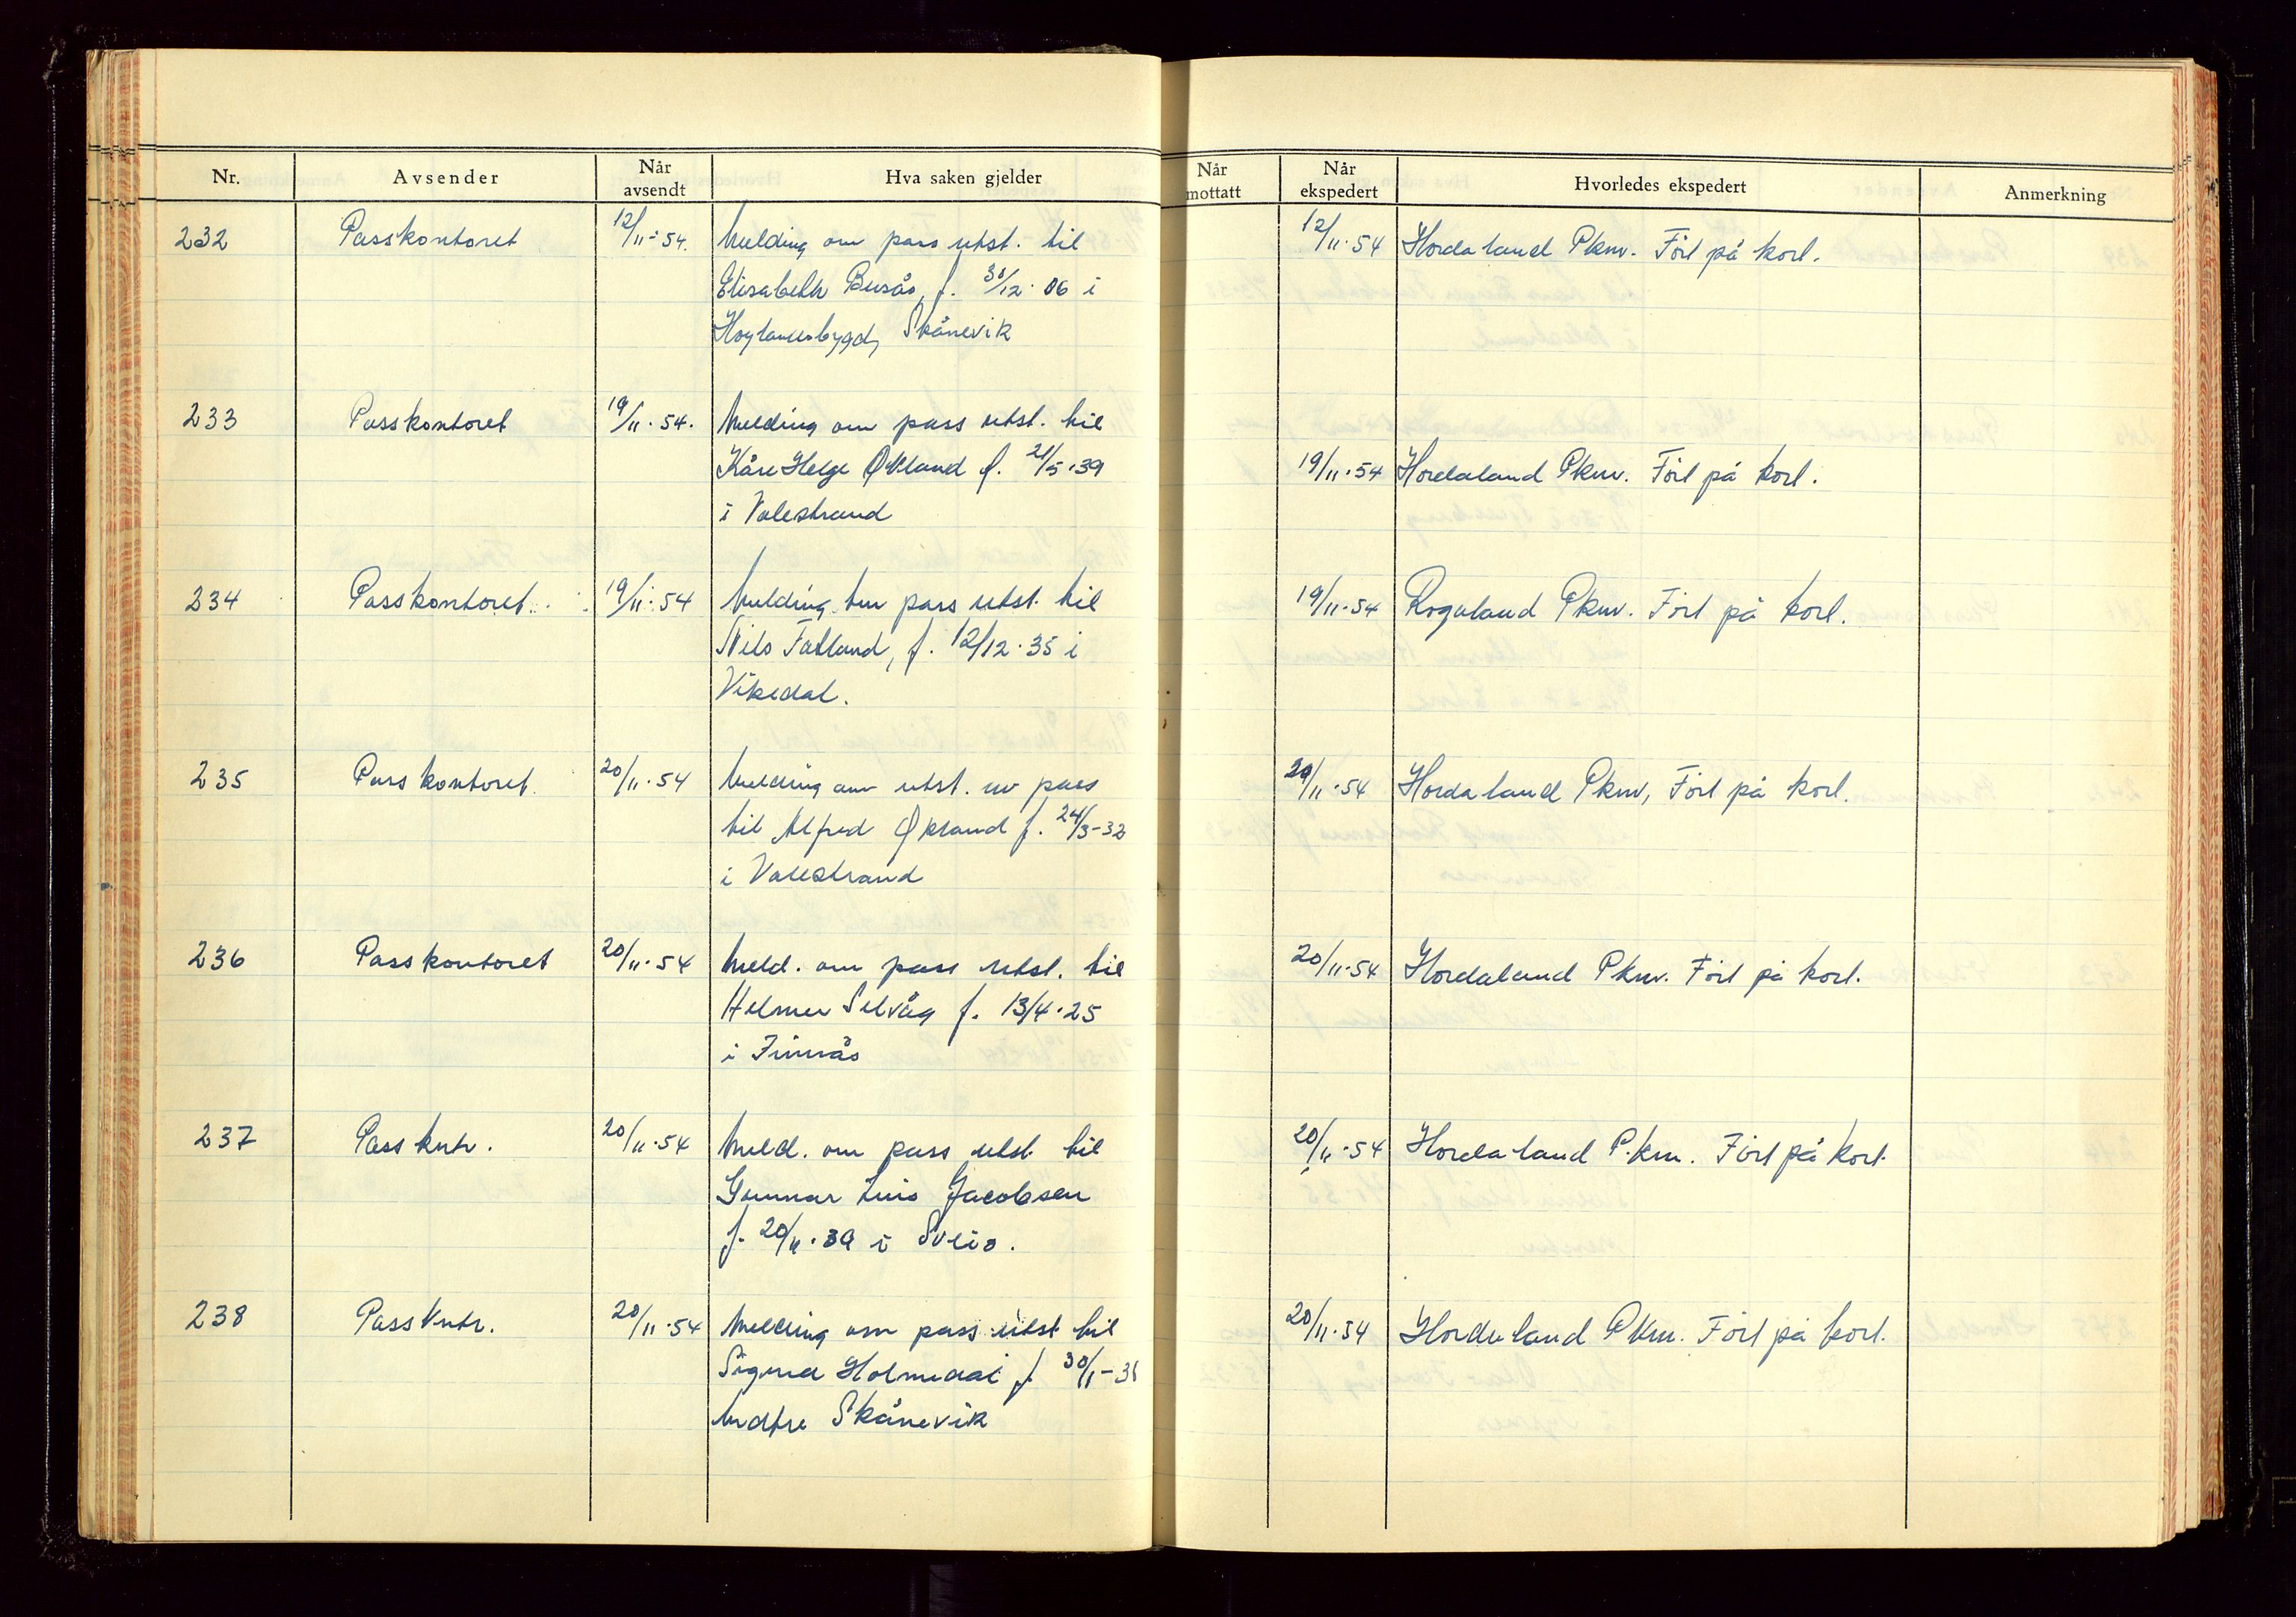 Nr. Avsender Når avsendt Hva saken gjelder Når mottatt Når ekspedert Hvorledes ekspedert Anmerkning
232 Passkontoret 12/11-54. Melding om pass utst. til 12/11-54 Hordaland Pknr. Ført på kort.
Elisabeth Busås, f. 30/12-06 i
Høylandsbygd, Skånevik
233 Passkontoret 19/11-54. Melding om pass utst. til
Kåre Helge Økland f. 21/5-39 19/11-54 Hordaland Pknr. Ført på kort.
i Valestrand
234 Passkontoret. 19/11-54 Melding om pass utst. til 19/11-54 Rogaland Pknr. Ført på kort.
Nils Fatland, f. 12/12-35 i
Vikedal.
235 Passkontoret. 20/11-54 Melding om utst. av pass 20/11-54 Hordaland Pknr, Ført på kort.
til Alfred Økland f. 24/3-32
i Valestrand
236 Passkontoret 20/11-54 Meld. om pass utst. til 20/11-54 Hordaland Pknr. Ført på kort.
Helmer Selvåg f. 13/4-25
i Finnås
237 Passkntr. 20/11-54 Meld. om pass utst. til 20/11-54 Hordaland P.knr. Ført på kort.
Gunnar Jacobsen
f. 20/11-39 i Sveio.
238 Passkntr. 20/11-54 Melding om pass utst til 20/11-54 Hordaland Pknr. Ført på kort.
Sigurd Holmedal f. 30/1-3
Skånevik